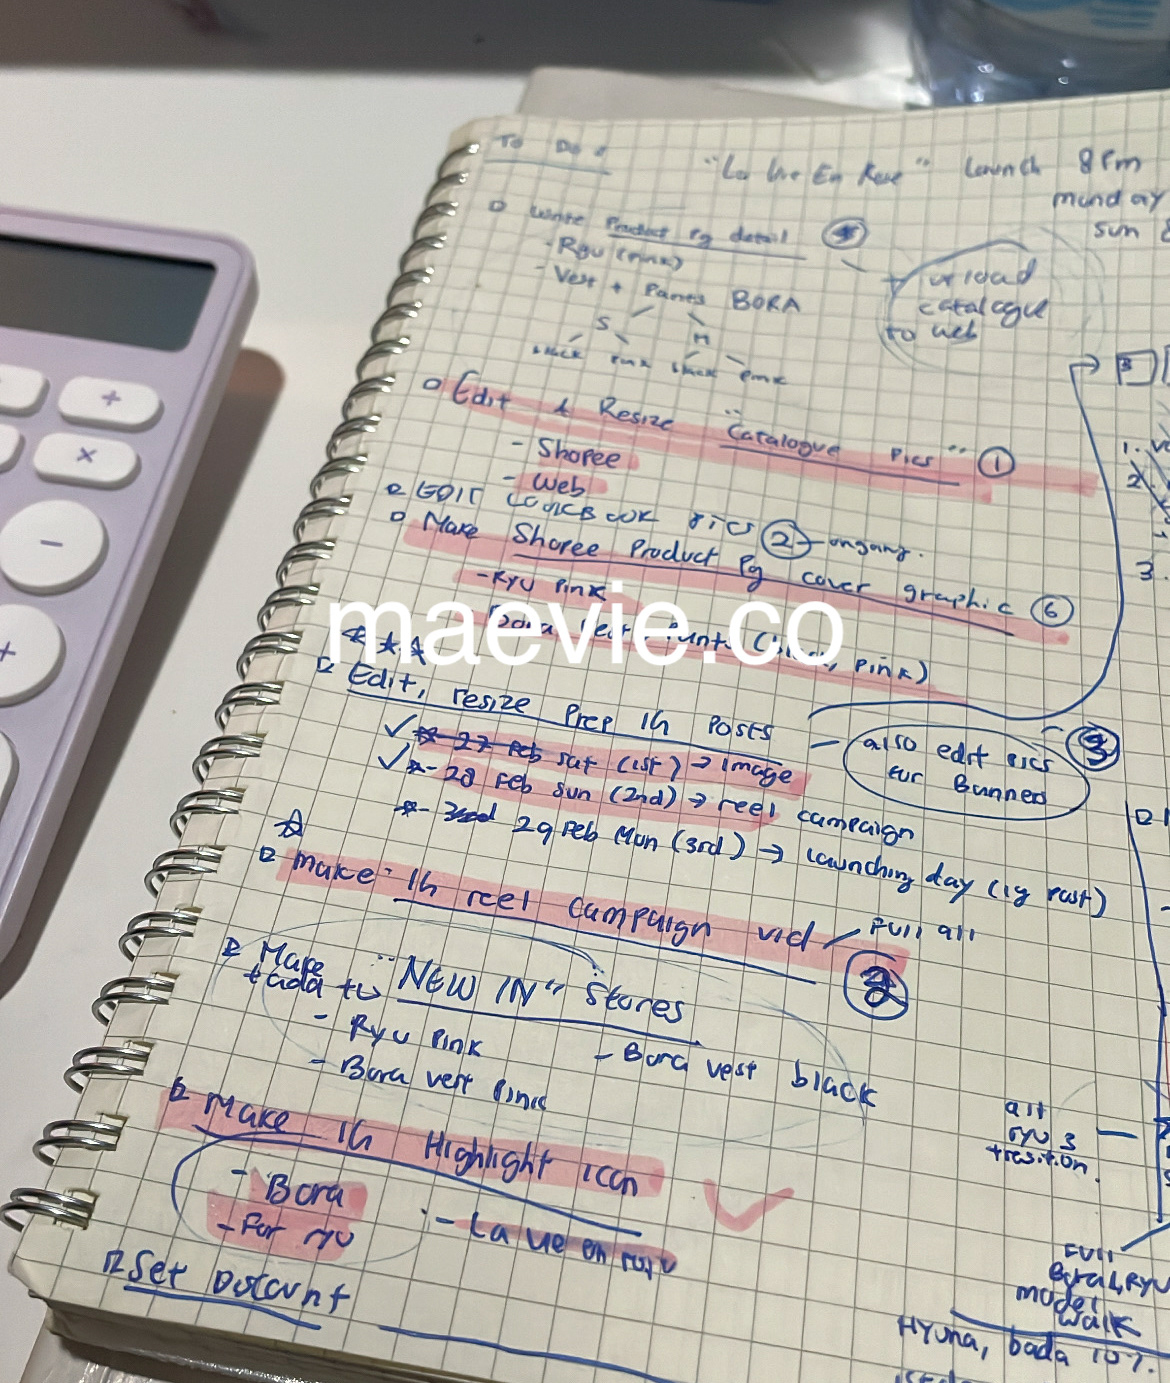 To Do:
"La Vie En Rose" Launch 8pm
monday
sun
Write Product Pg detail
- Ryu (Pink)
- Vest + Pants BORA
S M
black pink black pink
+ upload
catalogue
to web
Edit & Resize "Catalogue Pics" 1
- Shopee
- Web
EDIT LOOKBOOK PICS 2 - ongoing.
Make Shopee Product Pg cover graphic 6
- Ryu Pink
pink)
maevie.co
Edit, resize Prep IG Posts
27 Feb sat (1st) → image
- 28 Feb sun (2nd) → reel campaign
- 29 Feb Mon (3rd) → launching day (ig post)
also edit pics
for Banners
3
Make IG reel campaign vid
Full all
2
Make "NEW IN" stores
+ add to
- Ryu Pink
- Bora vest black
- Bora vest pink
Make IG Highlight icon
- Bora
- For ryu
- La vie en
Set Discount
3
1.
2.
3.
all
ryu 3
Full
Bora &, Ryu
model
walk
Hyuna, bada 10%.